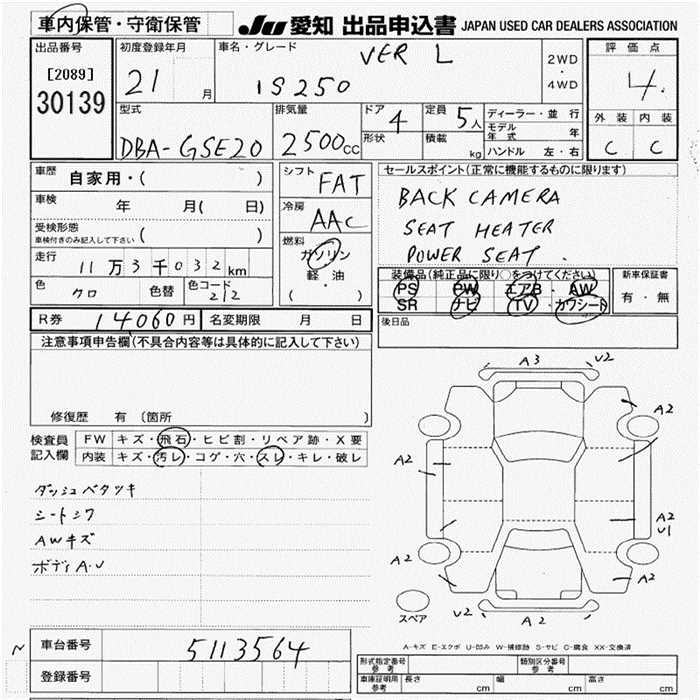 車内保管・守衛保管
JU 愛知 出品申込書 JAPAN USED CAR DEALERS ASSOCIATION
出品番号
[2089]
30139
初度登録年月
21 月
車名・グレード
VER L
IS250
2WD
・
4WD
評価点
4.
外装 内装
C C
型式
DBA-GSE20
排気量
2500cc
ドア 4
形状
定員 5人
積載 kg
ディーラー・並行
モデル年式 年
ハンドル 左・右
車歴
自家用・( )
車検 年 月( 日)
受検形態
車検付きのみ記入して下さい ( )
走行
11万3千032km
色 クロ 色替 色コード 212
シフト FAT
冷房 AAC
燃料
ガソリン
・
軽・油
( )
セールスポイント(正常に機能するものに限ります)
BACK CAMERA
SEAT HEATER
POWER SEAT .
装備品(純正品に限り○をつけてください)
PS PW エアB AW
SR ナビ TV カワシート
新車保証書
有・無
R券 14060円 名変期限 月 日
後日品
注意事項申告欄(不具合内容等は具体的に記入して下さい)
修復歴 有 (箇所 )
検査員記入欄
FW キズ・飛石・ヒビ割・リペア跡・X要
内装 キズ・汚レ・コゲ・穴・スレ・キレ・破レ
ダッシュベタツキ
シートシワ
AWキズ
ボディA・U
A3 V2
A2
A2
A2
A2
V1
A2
A2
V2 A2
スペア
A-キズ E-エクボ U-凹み W-補修跡 S-サビ C-腐食 XX-交換済
N
車台番号 5113564
登録番号
形式指定番号 参考
類別区分番号 参考
車庫証明用 参考
長さ cm 幅 cm 高さ cm